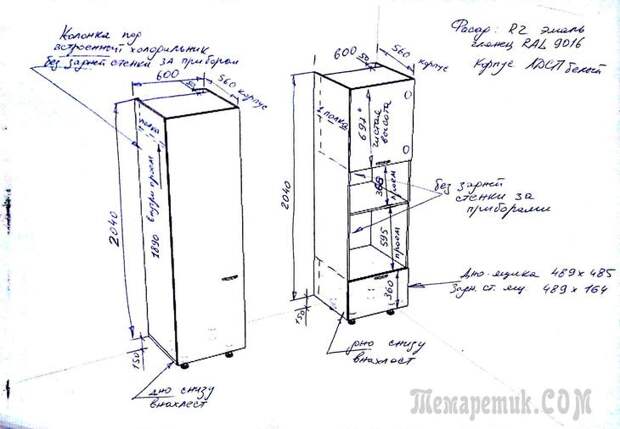 Колонка под
встроенный холодильник
без задней стенки за прибором
600
50
560 корпус
полка
2040
1890 внутр проем
150
дно снизу
внахлест
600
50
560
корпус
1 полка
694
чистая
высота
360
проем
595
проем
360
2040
150
дно снизу
внахлест
без задней
стенки за
приборами
Дно ящика 489 х 485
Задн. ст. ящ 489 х 164
Фасад: R2 эмаль
глянец RAL 9016
Корпус ЛДСП белый
Темаретик.COM